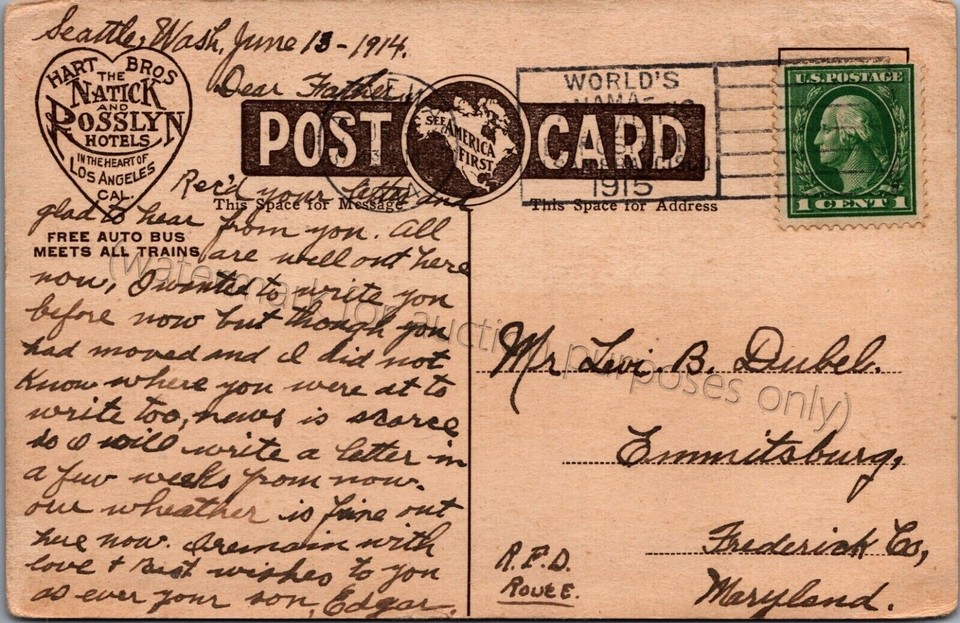 Seattle, Wash, June 13 - 1914.
Dear Father
HART BROS
THE
NATICK
AND
ROSSLYN
HOTELS
IN THE HEART OF
LOS ANGELES
CAL.
FREE AUTO BUS
MEETS ALL TRAINS
POST CARD
SEE AMERICA
FIRST
This Space for Message
This Space for Address
WORLD'S
1915
U.S. POSTAGE
1 CENT 1
Rec'd your letter and
glad to hear from you. All
are well out here
now, I wanted to write you
before now but though you
had moved and I did not
Know where you were at to
write too, news is scarce
so I will write a letter in
a few weeks from now.
our wheather is fine out
here now. I remain with
love + Best wishes to you
as ever your son, Edgar.
Mr Levi. B. Dubel.
Emmitsburg,
Frederick Co,
Maryland.
R.F.D.
ROUTE.
(watermark for auction purposes only)